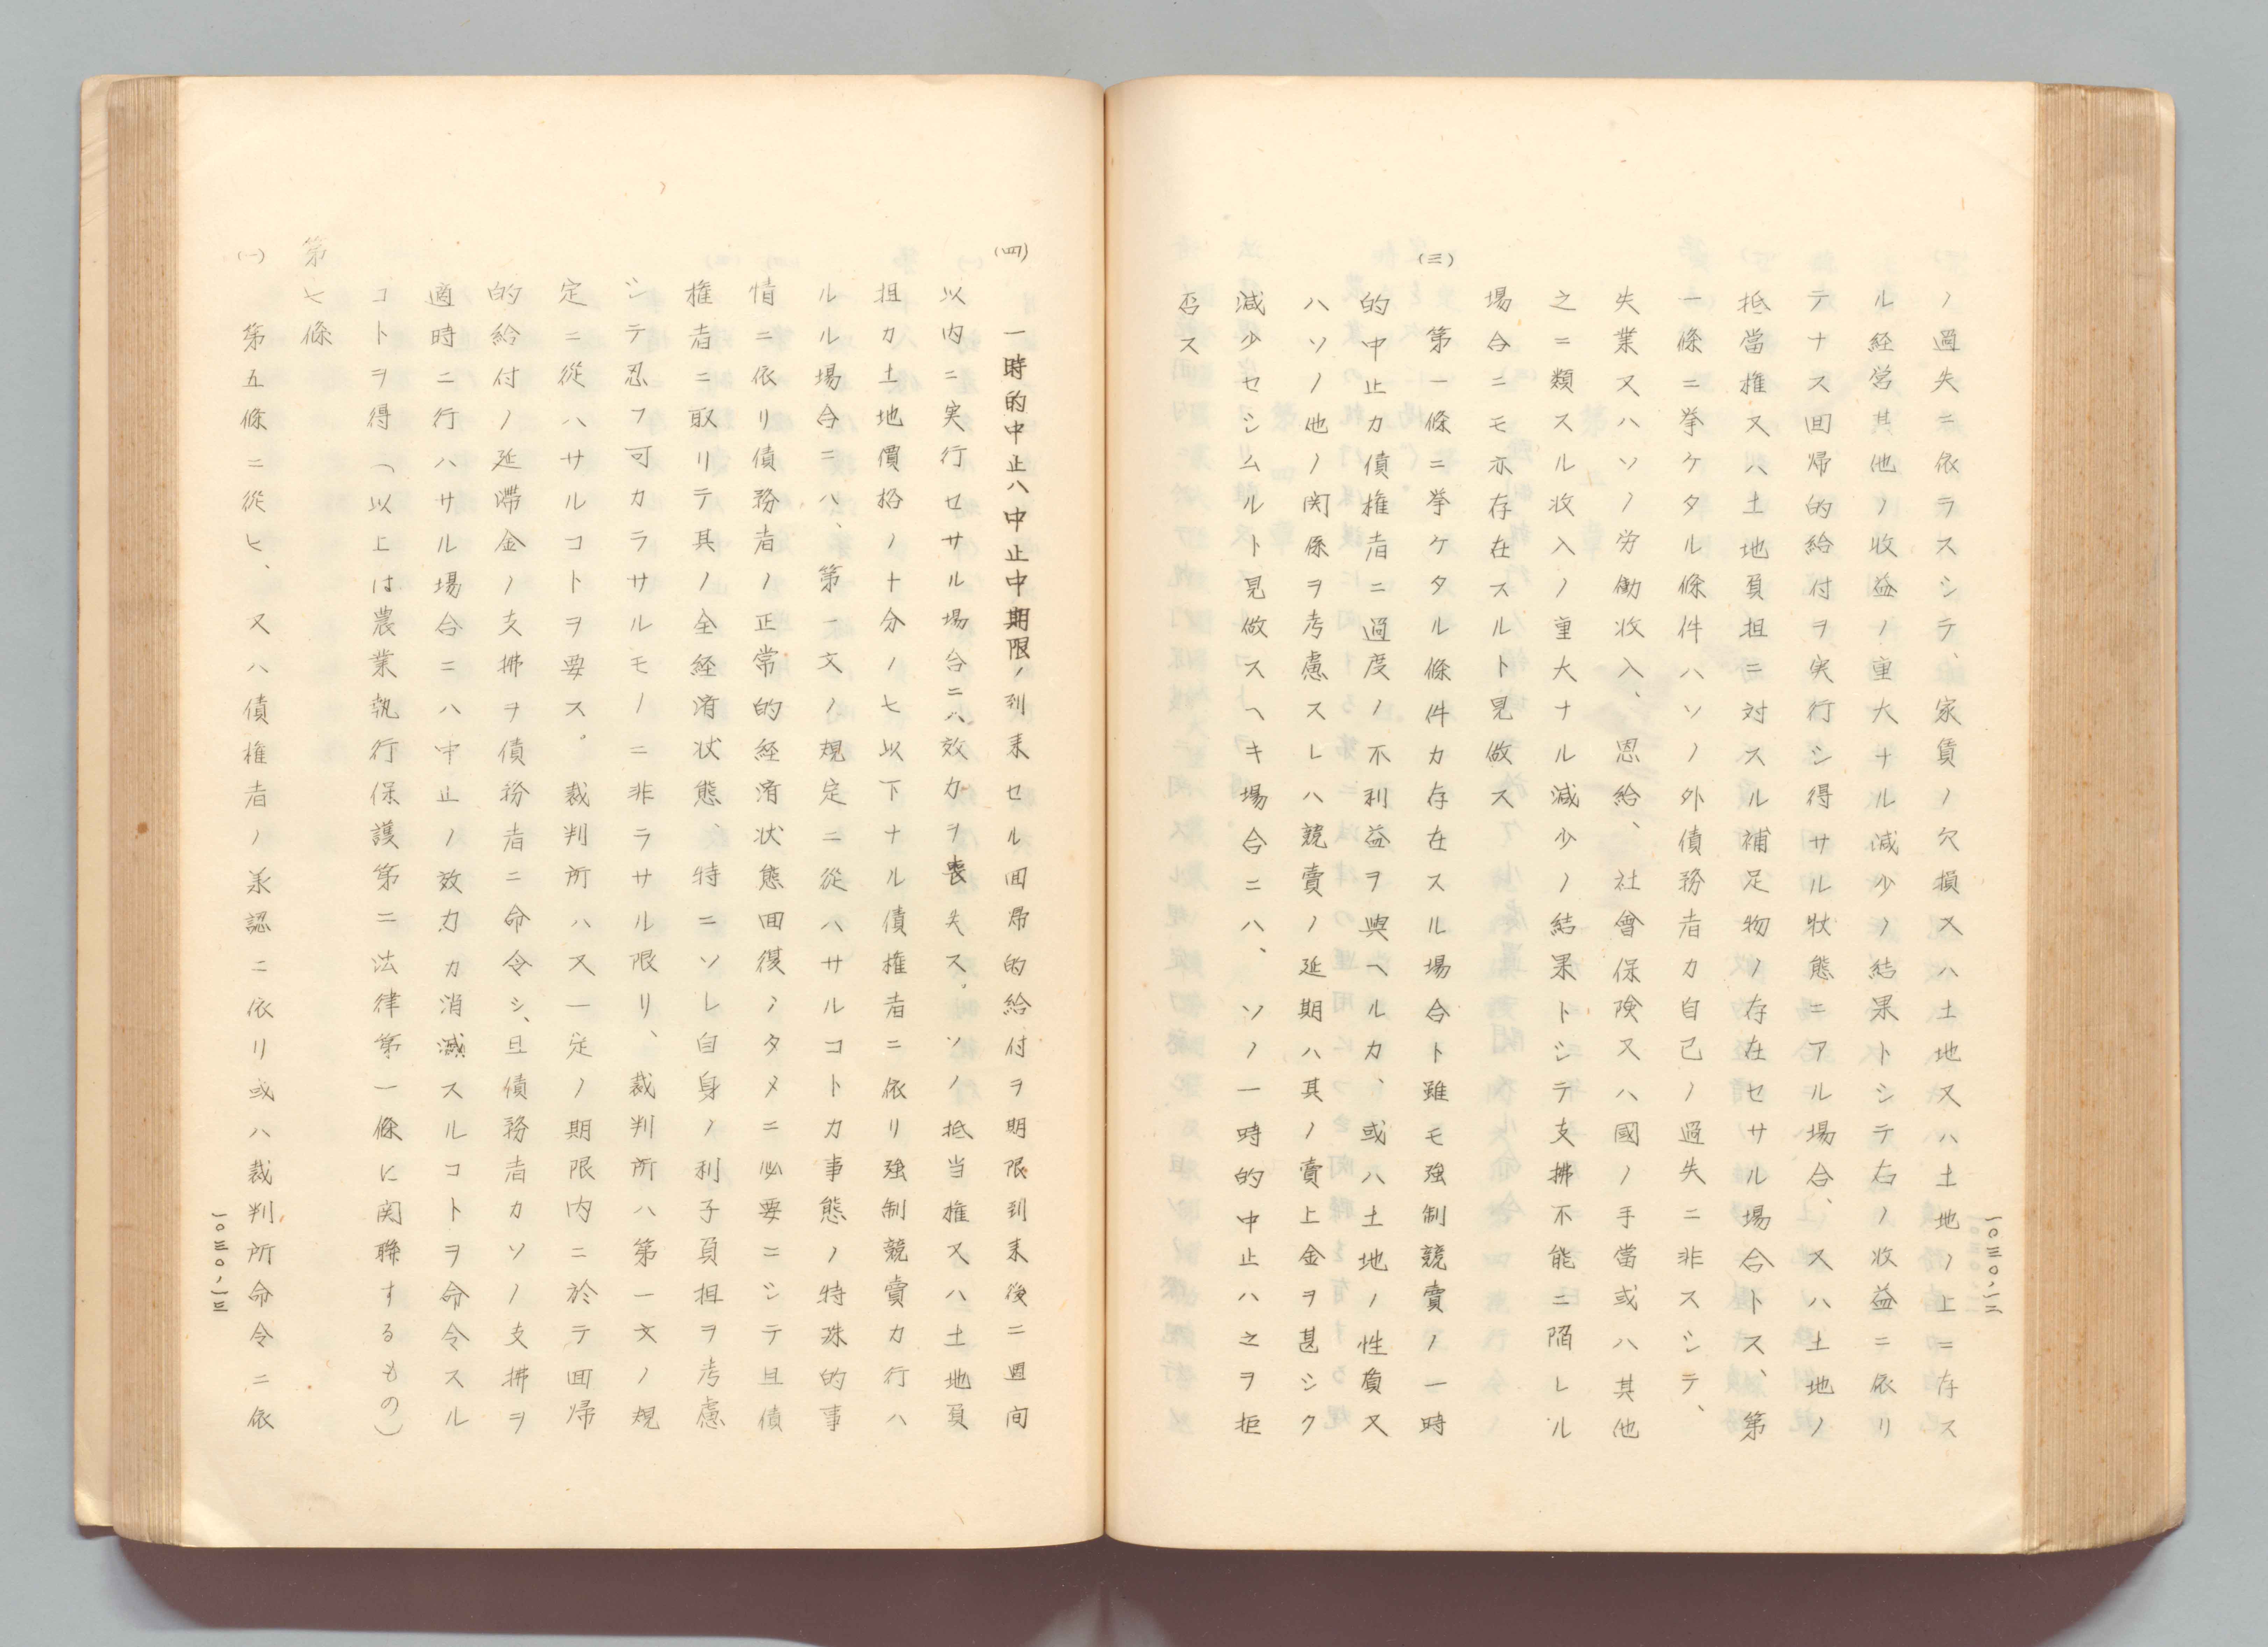 ノ過失ニ依ラスシテ、家賃ノ欠損又ハ土地又ハ土地ノ上ニ存ス
ル経営其他ノ收益ノ重大ナル減少ノ結果トシテ右ノ收益ニ依リ
テナス回帰的給付ヲ実行シ得サル状態ニアル場合、又ハ土地ノ
抵當権又ハ土地負担ニ対スル補足物ノ存在セサル場合トス、第
一條ニ挙ケタル條件ハソノ外債務者カ自己ノ過失ニ非スシテ、
失業又ハソノ労働收入、恩給、社會保険又ハ國ノ手當或ハ其他
之ニ類スル收入ノ重大ナル減少ノ結果トシテ支拂不能ニ陥レル
場合ニモ亦存在スルト見做ス
(三) 第一條ニ挙ケタル條件カ存在スル場合ト雖モ強制競賣ノ一時
的中止カ債権者ニ過度ノ不利益ヲ與ヘルカ、或ハ土地ノ性質又
ハソノ他ノ関係ヲ考慮スレハ競賣ノ延期ハ其ノ賣上金ヲ甚シク
減少セシムルト見做スヘキ場合ニハ、ソノ一時的中止ハ之ヲ拒
否ス
一〇三〇、一二
(四) 一時的中止ハ中止中期限ノ到来セル回帰的給付ヲ期限到来後二週間
以内ニ実行セサル場合ニハ效力ヲ喪失ス。ソノ抵当権又ハ土地負
担カ土地價格ノ十分ノ七以下ナル債権者ニ依リ強制競賣カ行ハ
ルル場合ニハ、第一文ノ規定ニ従ハサルコトカ事態ノ特殊的事
情ニ依リ債務者ノ正常的経済状態回復ノタメニ必要ニシテ且債
権者ニ取リテ其ノ全経済状態、特ニソレ自身ノ利子負担ヲ考慮
シテ忍フ可カラサルモノニ非ラサル限リ、裁判所ハ第一文ノ規
定ニ従ハサルコトヲ要ス。裁判所ハ又一定ノ期限内ニ於テ回帰
的給付ノ延滞金ノ支拂ヲ債務者ニ命令シ、且債務者カソノ支拂ヲ
適時ニ行ハサル場合ニハ中止ノ效力カ消滅スルコトヲ命令スル
コトヲ得（以上は農業執行保護第二法律第一條に関聯するもの）
第七條
(一) 第五條ニ従ヒ、又ハ債権者ノ承認ニ依リ或ハ裁判所命令ニ依
一〇三〇、一三